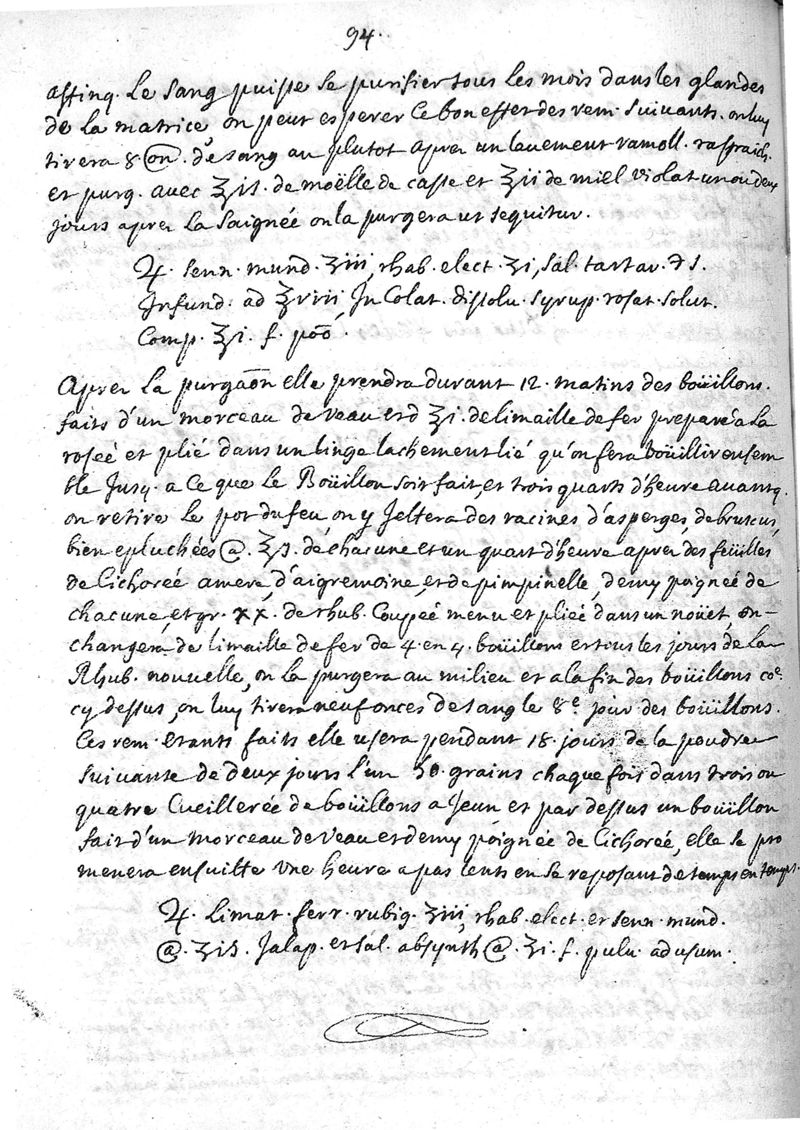 94.
affinq. le sang puisse se purifier tous les mois dans les glandes
de la matrice, on peut esperer ce bon effet des rem. suivants. on luy
tirera 8 on. de sang au plutot aprer un lavement ramoll. rafraich.
et purg. avec ℥is. de moëlle de casse et ℥ii de miel violat un ou deux
jours aprer la saignée on la purgera ut sequitur.
♃. senn. mund. ʒiii, rhab. elect. ʒi, sal. tartar. ϶ s.
Infund. ad ℥viii In Colat. dissolu. syrup. rosat. solut.
Comp. ℥i. f. poō.
Aprer la purgaōn elle prendra durant 12. matins des boüillons.
faits d'un morceau de veau et d ℥i. de limaille de fer preparé a la
roseé et plié dans un linge lachement lié qu'on fera boüillir ensem
ble Jusq. a ce que le Boüillon soit fait, et trois quarts d'heure avant q.
on retire le pot du feu on y Jettera des racines d'asperges, de bruscus,
bien epluchées @. ℥s. de chacune et un quart d'heure aprer des feüilles
de Cichoreé amere, d'aigremoine, et de pimpinelle, demy poignee de
chacune, et gr. xx. de rhub. Coupeé menu et plieé dans un noüet, on
changera de limaille de fer de 4. en 4. boüillons et tous les jours de la
Rhub. nouvelle, on la purgera au milieu et a la fin des boüillons coē.
cy dessus, on luy tirera neuf onces de sang le 8e. jour des boüillons.
Ces rem. etants faits elle usera pendant 18. jours de la poudre
suivante de deux jours l'un 30. grains chaque fois dans trois ou
quatre Cueillereé de boüillons a Jeun et par dessus un boüillon
fait d'un morceau de veau et demy poignée de Cichoreé, elle se pro
menera ensuitte une heure a pas lents en se reposant de temps en temps.
♃. Limat. ferr. rubig. ʒiii, rhab. elect. et senn. mund.
@. ʒis. Jalap. et sal. absynth @. ʒi. f. pulv. ad usum.